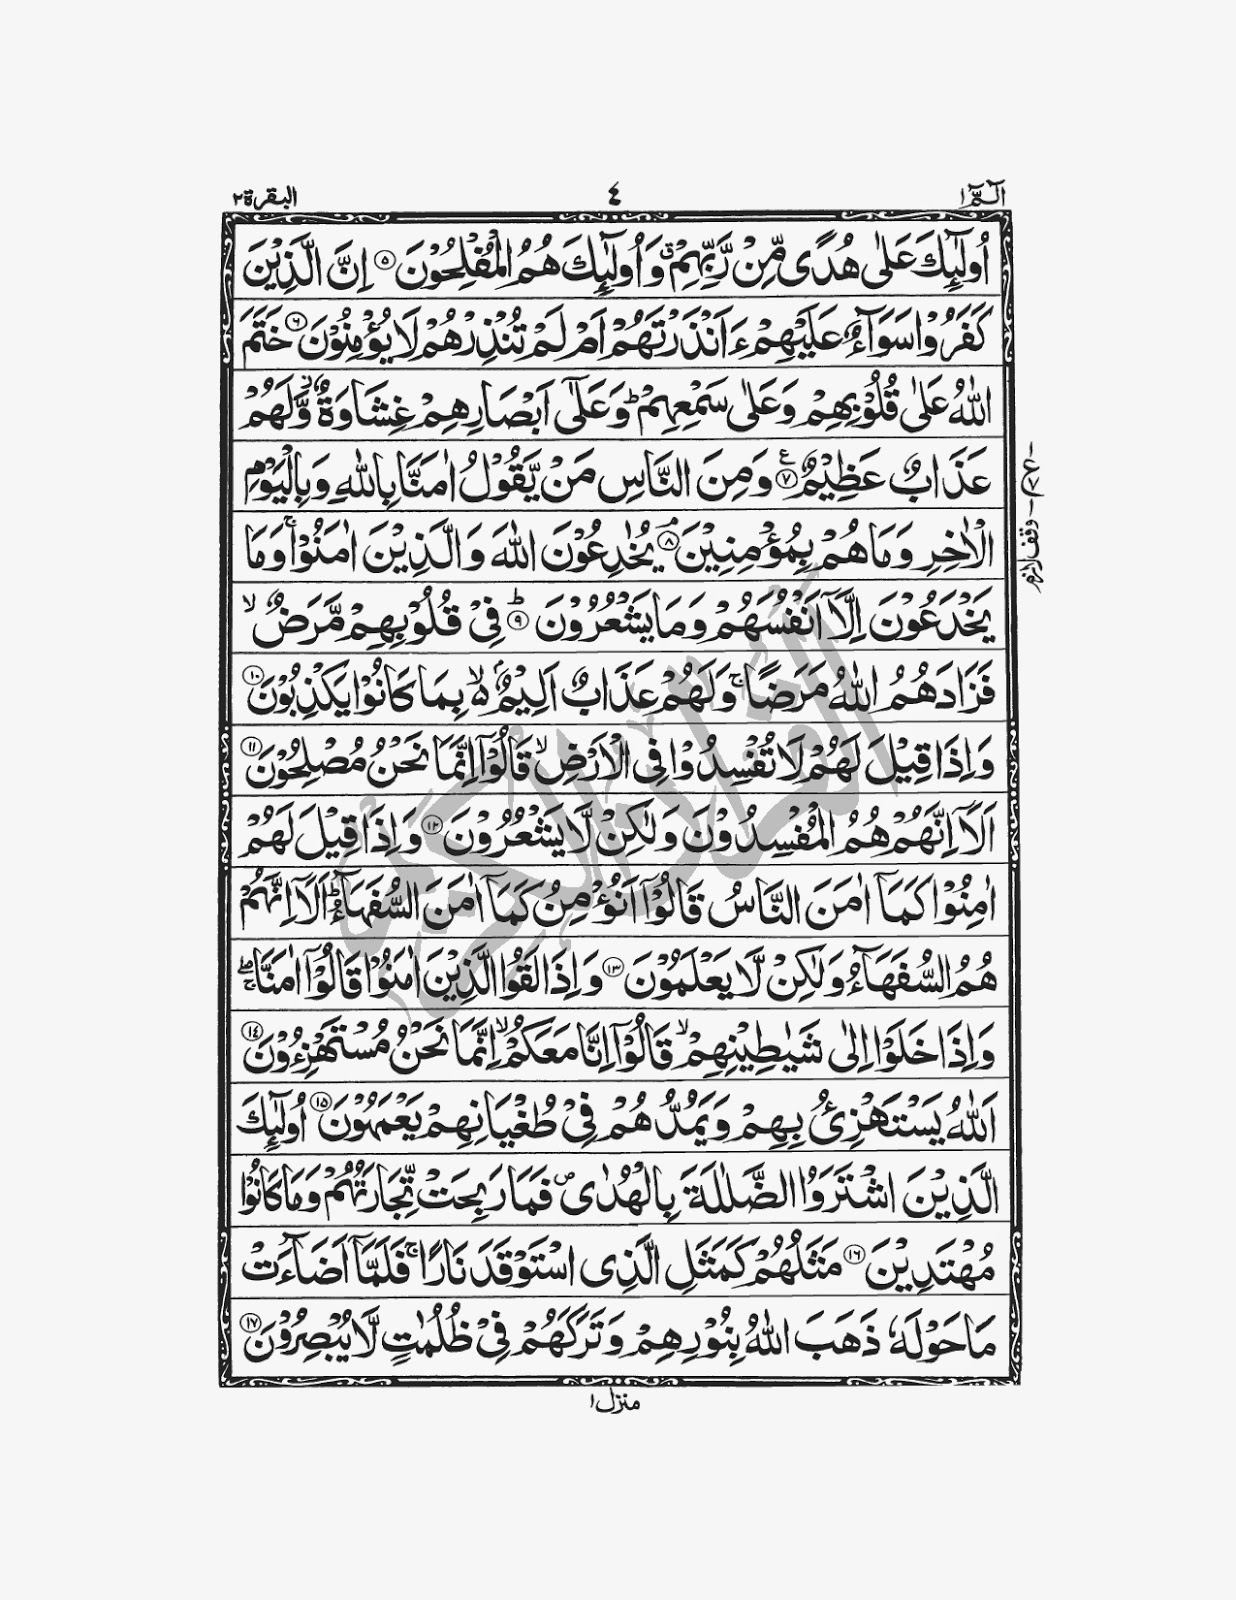 الٓمّٓ ١
٤
البقرة ٢
اُولٰٓئِكَ عَلٰى هُدًى مِّنْ رَّبِّهِمْ ۗ وَاُولٰٓئِكَ هُمُ الْمُفْلِحُوْنَ ۝٥ اِنَّ الَّذِيْنَ
كَفَرُوْا سَوَآءٌ عَلَيْهِمْ ءَاَنْذَرْتَهُمْ اَمْ لَمْ تُنْذِرْهُمْ لَا يُؤْمِنُوْنَ ۝٦ خَتَمَ
اللّٰهُ عَلٰى قُلُوْبِهِمْ وَعَلٰى سَمْعِهِمْ ؕ وَعَلٰٓى اَبْصَارِهِمْ غِشَاوَةٌ ؗ وَّلَهُمْ
عَذَابٌ عَظِيْمٌ ۝٧ ع وَمِنَ النَّاسِ مَنْ يَّقُوْلُ اٰمَنَّا بِاللّٰهِ وَبِالْيَوْمِ
الْاٰخِرِ وَمَا هُمْ بِمُؤْمِنِيْنَ ۝٨ۘ يُخٰدِعُوْنَ اللّٰهَ وَالَّذِيْنَ اٰمَنُوْا ۚ وَمَا
يَخْدَعُوْنَ اِلَّاۤ اَنْفُسَهُمْ وَمَا يَشْعُرُوْنَ ۝٩ؕ فِيْ قُلُوْبِهِمْ مَّرَضٌ ۙ
فَزَادَهُمُ اللّٰهُ مَرَضًا ۚ وَلَهُمْ عَذَابٌ اَلِيْمٌ ۢۙ بِمَا كَانُوْا يَكْذِبُوْنَ ۝١٠
وَاِذَا قِيْلَ لَهُمْ لَا تُفْسِدُوْا فِى الْاَرْضِ ۙ قَالُوْۤا اِنَّمَا نَحْنُ مُصْلِحُوْنَ ۝١١
اَلَاۤ اِنَّهُمْ هُمُ الْمُفْسِدُوْنَ وَلٰكِنْ لَّا يَشْعُرُوْنَ ۝١٢ وَاِذَا قِيْلَ لَهُمْ
اٰمِنُوْا كَمَاۤ اٰمَنَ النَّاسُ قَالُوْۤا اَنُؤْمِنُ كَمَاۤ اٰمَنَ السُّفَهَآءُ ؕ اَلَاۤ اِنَّهُمْ
هُمُ السُّفَهَآءُ وَلٰكِنْ لَّا يَعْلَمُوْنَ ۝١٣ وَاِذَا لَقُوا الَّذِيْنَ اٰمَنُوْا قَالُوْۤا اٰمَنَّا ۖۚ
وَاِذَا خَلَوْا اِلٰى شَيٰطِيْنِهِمْ ۙ قَالُوْۤا اِنَّا مَعَكُمْ ۙ اِنَّمَا نَحْنُ مُسْتَهْزِءُوْنَ ۝١٤
اَللّٰهُ يَسْتَهْزِئُ بِهِمْ وَيَمُدُّهُمْ فِيْ طُغْيَانِهِمْ يَعْمَهُوْنَ ۝١٥ اُولٰٓئِكَ
الَّذِيْنَ اشْتَرَوُا الضَّلٰلَةَ بِالْهُدٰى ۪ فَمَا رَبِحَتْ تِّجَارَتُهُمْ وَمَا كَانُوْا
مُهْتَدِيْنَ ۝١٦ مَثَلُهُمْ كَمَثَلِ الَّذِى اسْتَوْقَدَ نَارًا ۚ فَلَمَّاۤ اَضَآءَتْ
مَا حَوْلَهٗ ذَهَبَ اللّٰهُ بِنُوْرِهِمْ وَتَرَكَهُمْ فِيْ ظُلُمٰتٍ لَّا يُبْصِرُوْنَ ۝١٧
ع ٧
وقف لازم
القرآن الكريم
منزل ١